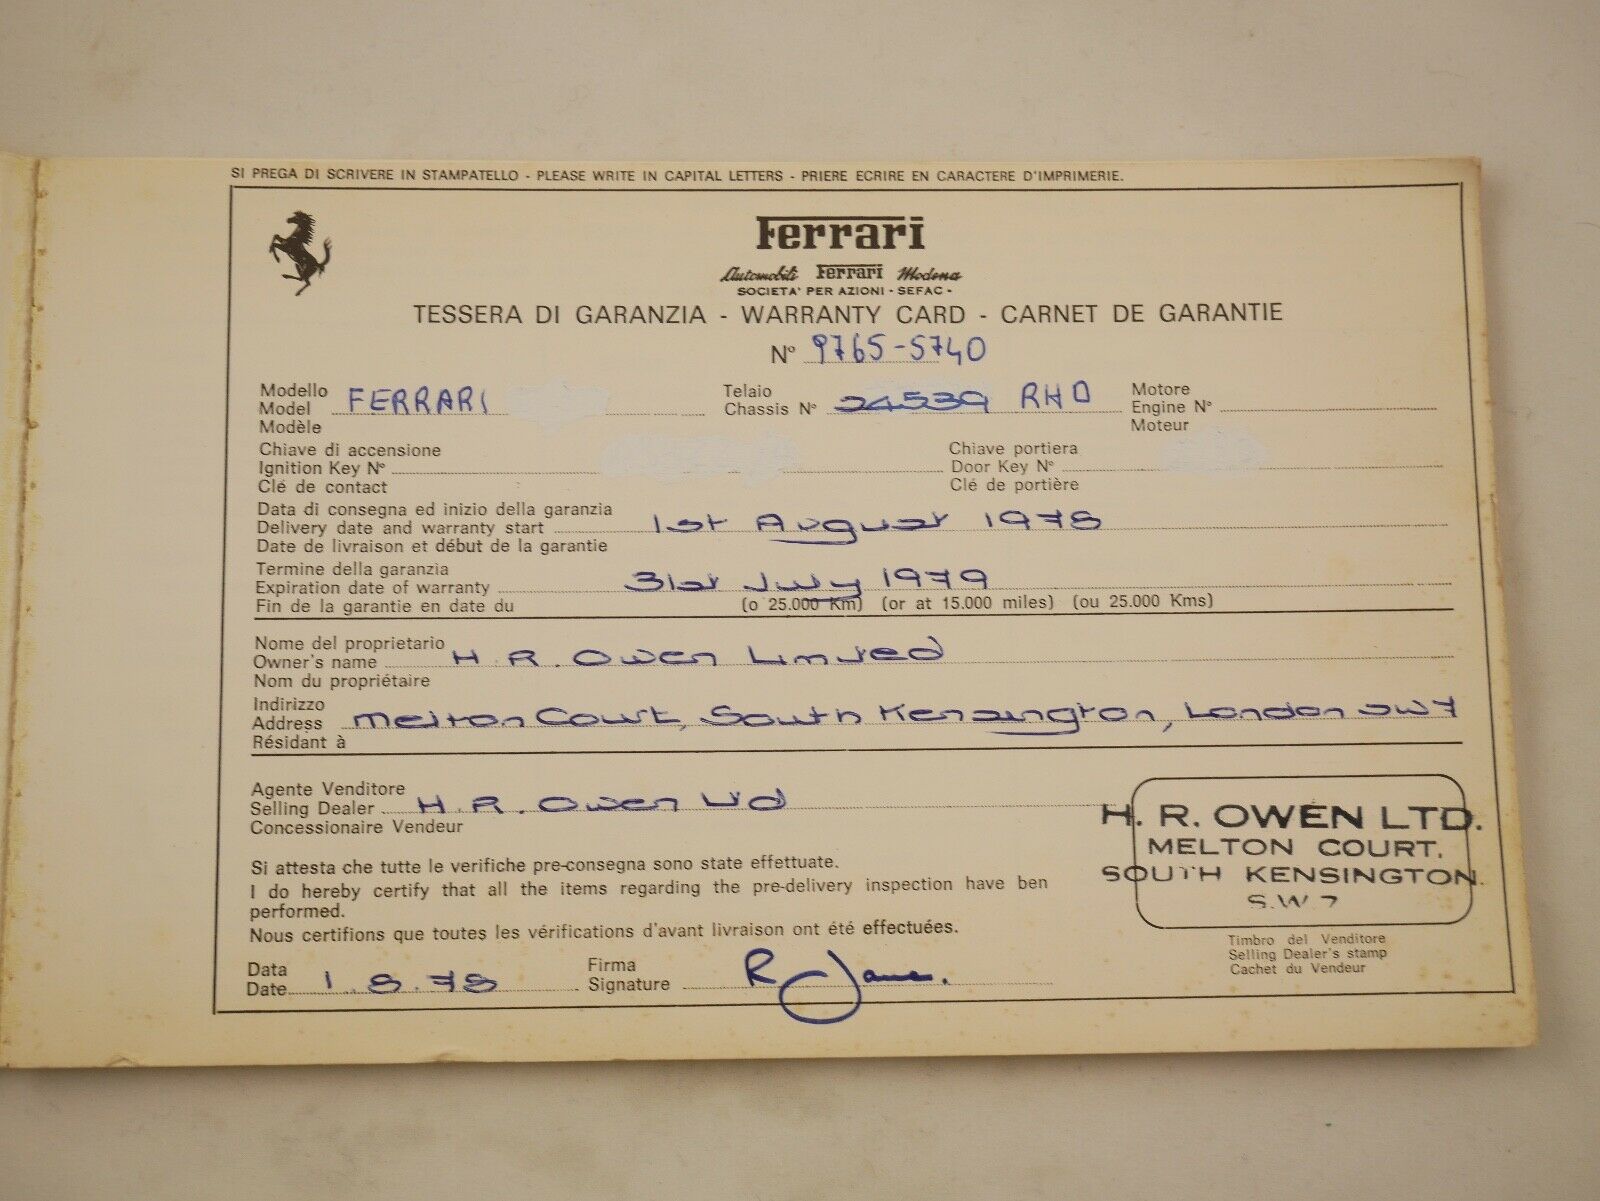 SI PREGA DI SCRIVERE IN STAMPATELLO - PLEASE WRITE IN CAPITAL LETTERS - PRIERE ECRIRE EN CARACTERE D'IMPRIMERIE.
Ferrari
Automobili Ferrari Modena
SOCIETA' PER AZIONI - SEFAC -
TESSERA DI GARANZIA - WARRANTY CARD - CARNET DE GARANTIE
N° 9765-5740
Modello
Model FERRARI
Modèle
Telaio
Chassis N° 24539 RHD
Motore
Engine N°
Moteur
Chiave di accensione
Ignition Key N°
Clé de contact
Chiave portiera
Door Key N°
Clé de portière
Data di consegna ed inizio della garanzia
Delivery date and warranty start 1st August 1978
Date de livraison et début de la garantie
Termine della garanzia
Expiration date of warranty 31st July 1979
Fin de la garantie en date du (o 25.000 Km) (or at 15.000 miles) (ou 25.000 Kms)
Nome del proprietario
Owner's name H. R. Owen Limited
Nom du propriétaire
Indirizzo
Address Melton Court, South Kensington, London SW7
Résidant à
Agente Venditore
Selling Dealer H. R. Owen Ltd
Concessionaire Vendeur
H. R. OWEN LTD.
MELTON COURT.
SOUTH KENSINGTON.
S.W.7
Si attesta che tutte le verifiche pre-consegna sono state effettuate.
I do hereby certify that all the items regarding the pre-delivery inspection have ben
performed.
Nous certifions que toutes les vérifications d'avant livraison ont été effectuées.
Timbro del Venditore
Selling Dealer's stamp
Cachet du Vendeur
Data
Date 1.8.78
Firma
Signature R